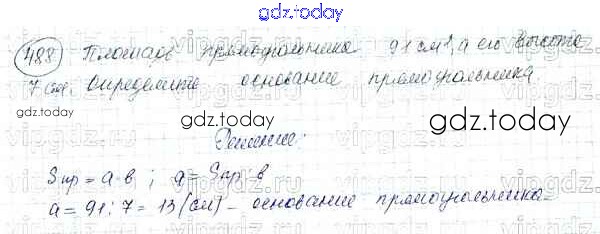 gdz.today
488 Площадь прямоугольника 91 см², а его высота
7 см. Определите основание прямоугольника.
gdz.today
gdz.today
Решение:
Sпр = a·b ; a = Sпр : b
a = 91 : 7 = 13 (см) - основание прямоугольника